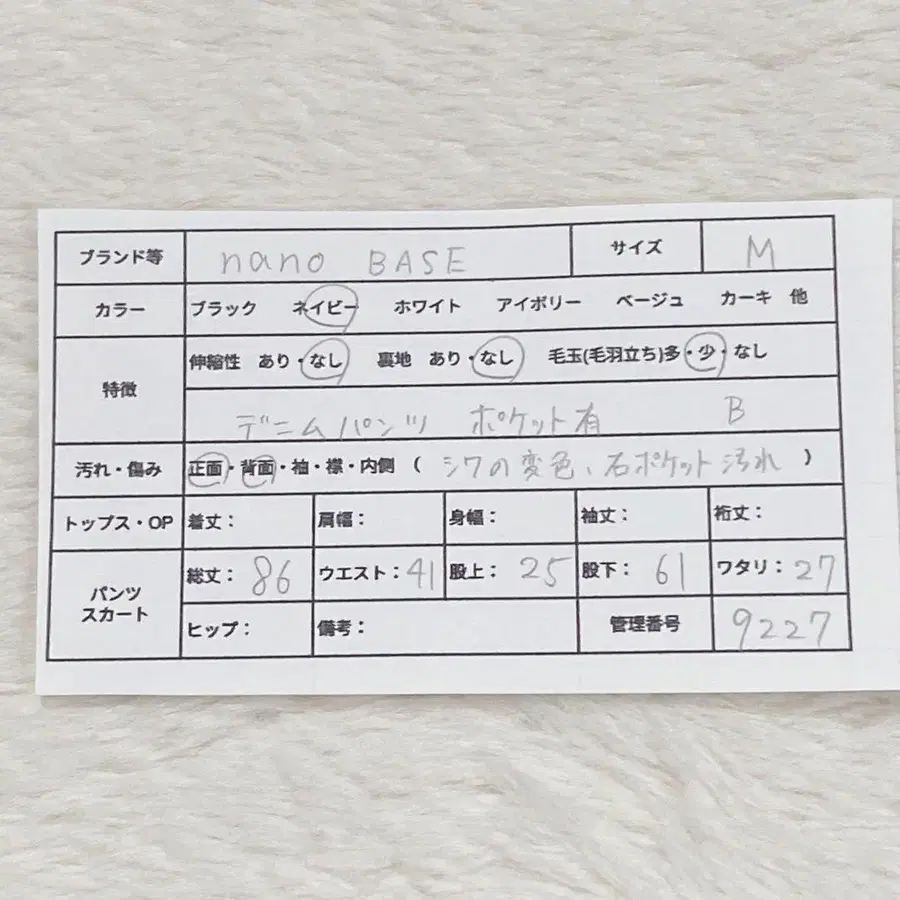 ブランド等 nano BASE サイズ M
カラー ブラック ネイビー ホワイト アイボリー ベージュ カーキ 他
特徴 伸縮性 あり・なし 裏地 あり・なし 毛玉(毛羽立ち)多・少・なし
デニムパンツ ポケット有 B
汚れ・傷み 正面・背面・袖・襟・内側 ( シワの変色、右ポケット汚れ )
トップス・OP 着丈: 肩幅: 身幅: 袖丈: 裄丈:
パンツ スカート 総丈: 86 ウエスト: 41 股上: 25 股下: 61 ワタリ: 27
ヒップ: 備考: 管理番号 9227